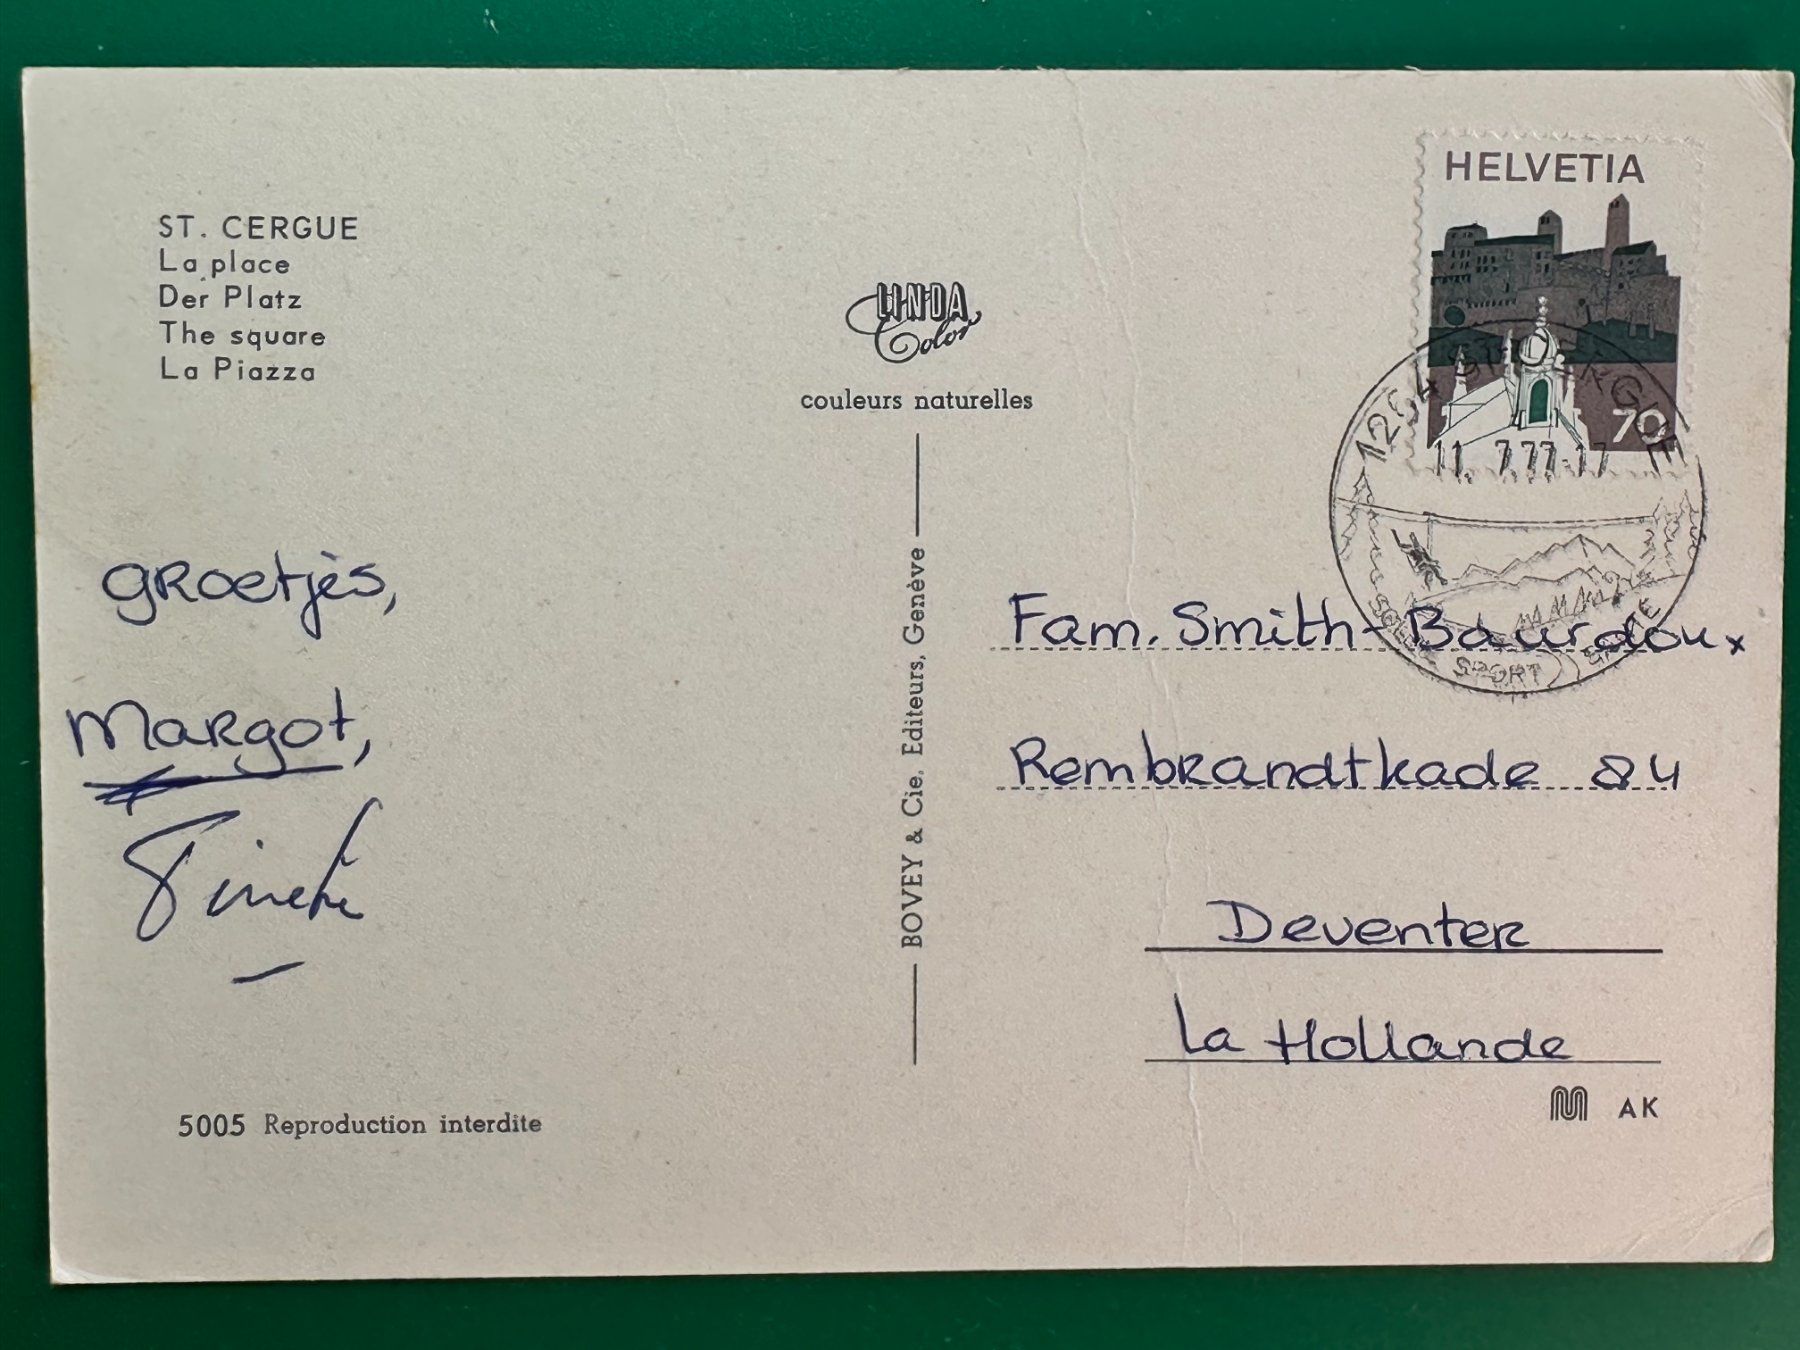 HELVETIA
70
1264 ST-CERGUE
11. 7.77.17
SOLEIL SPORT SANTE
ST. CERGUE
La place
Der Platz
The square
La Piazza
LINDA
Color
couleurs naturelles
BOVEY & Cie, Editeurs, Genève
groetjes,
Margot,
Fam. Smith-Bourdoux
Rembrandtkade 84
Deventer
La Hollande
5005 Reproduction interdite
AK